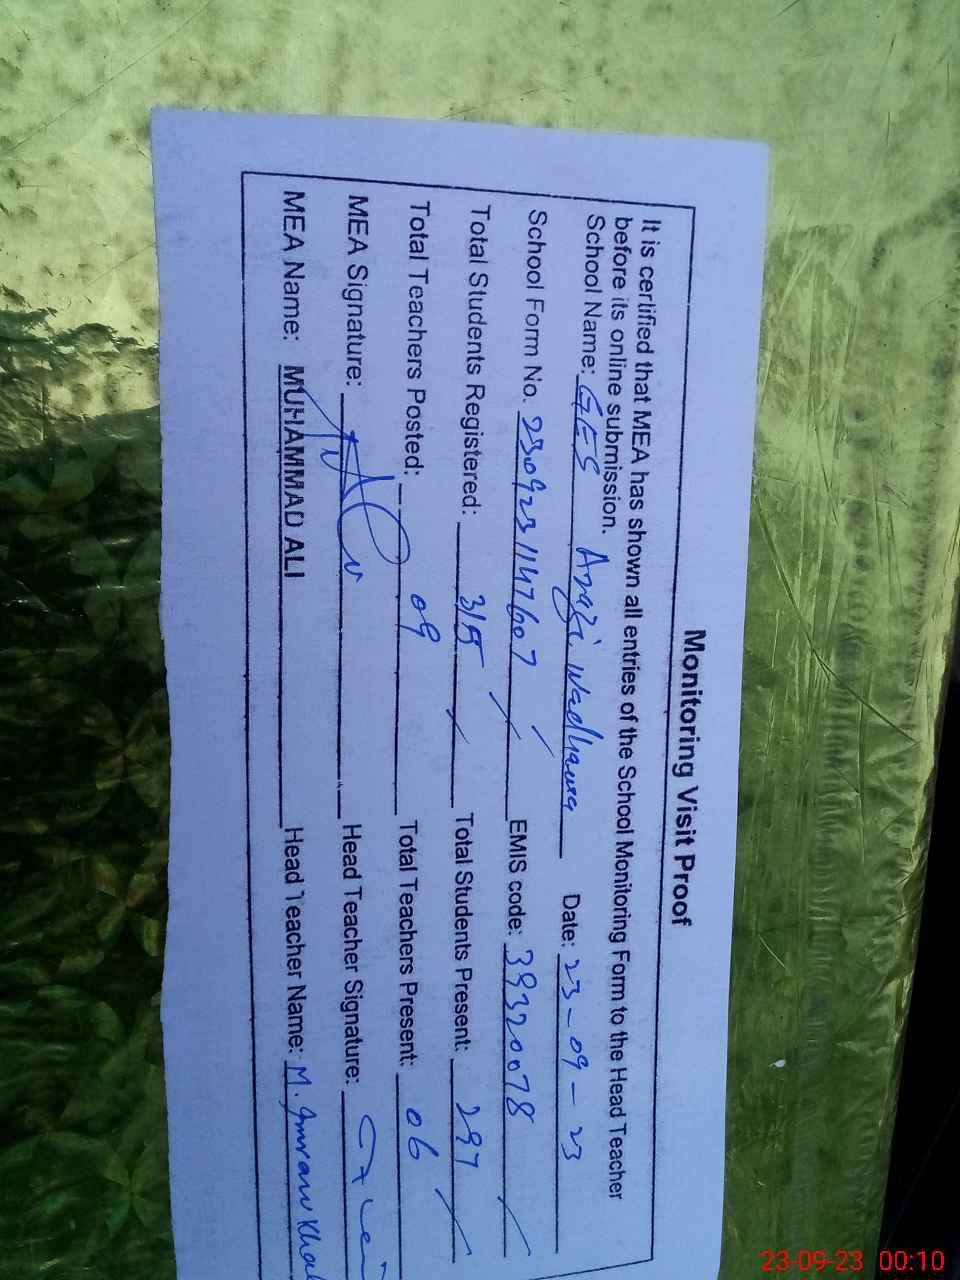 Monitoring Visit Proof
It is certified that MEA has shown all entries of the School Monitoring Form to the Head Teacher
before its online submission.
School Name: GES Arazi Wadhawa Date: 23-09-23
School Form No. 2309231147607 EMIS code: 39320078
Total Students Registered: 315 Total Students Present: 297
Total Teachers Posted: 09 Total Teachers Present: 06
MEA Signature: Head Teacher Signature:
MEA Name: MUHAMMAD ALI Head Teacher Name: M. Imran
23-09-23 00:10